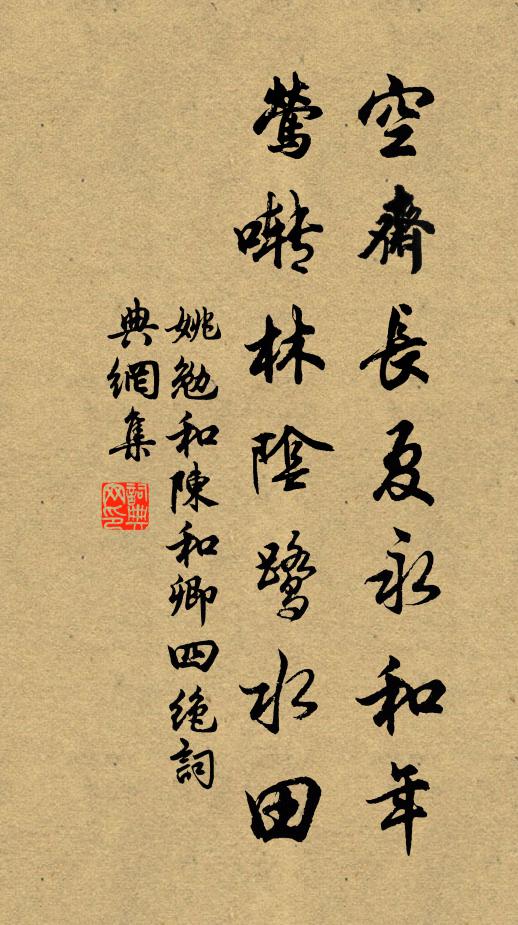 空齋長夏永和年
鶯囀林陰鷺水田
姚勉和陳和卿四絶詞
典網集
詞典
网印